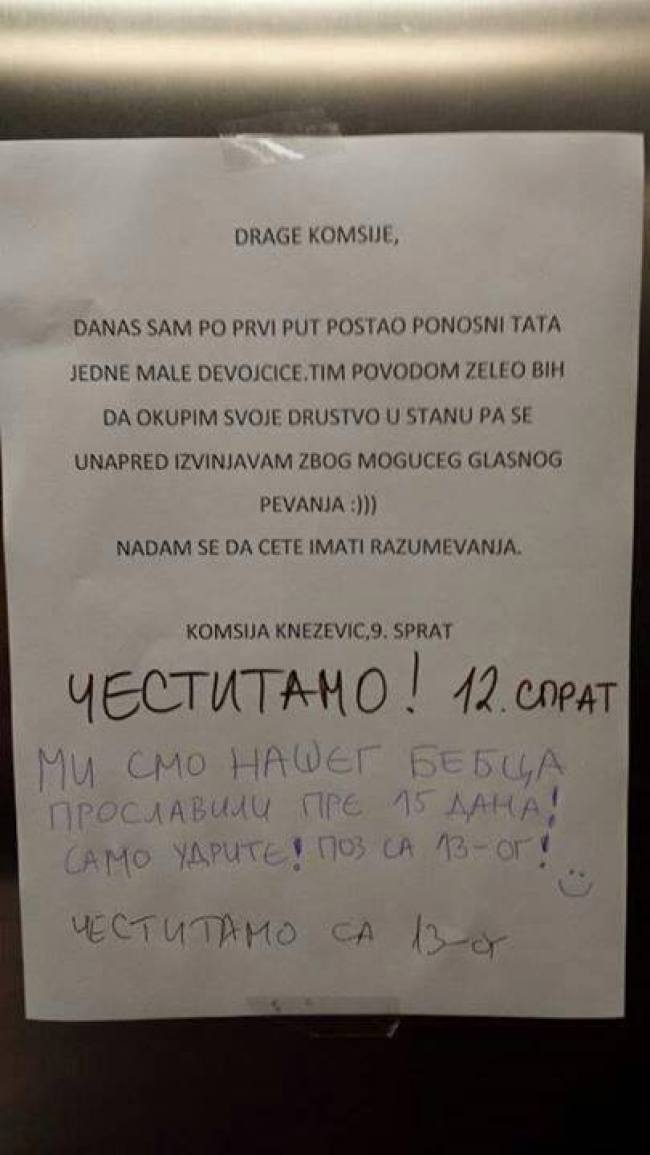 DRAGE KOMSIJE,
DANAS SAM PO PRVI PUT POSTAO PONOSNI TATA
JEDNE MALE DEVOJCICE.TIM POVODOM ZELEO BIH
DA OKUPIM SVOJE DRUSTVO U STANU PA SE
UNAPRED IZVINJAVAM ZBOG MOGUCEG GLASNOG
PEVANJA :)))
NADAM SE DA CETE IMATI RAZUMEVANJA.
KOMSIJA KNEZEVIC,9. SPRAT
ЧЕСТИТАМО! 12. СПРАТ
МИ СМО НАШЕГ БЕБЦА
ПРОСЛАВИЛИ ПРЕ 15 ДАНА!
САМО УДРИТЕ! ПОЗ СА 13-ОГ!
ЧЕСТИТАМО СА 13-ог